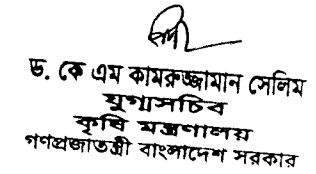 ড. কে এম কামরুজ্জামান সেলিম
যুগ্মসচিব
কৃষি মন্ত্রণালয়
গণপ্রজাতন্ত্রী বাংলাদেশ সরকার